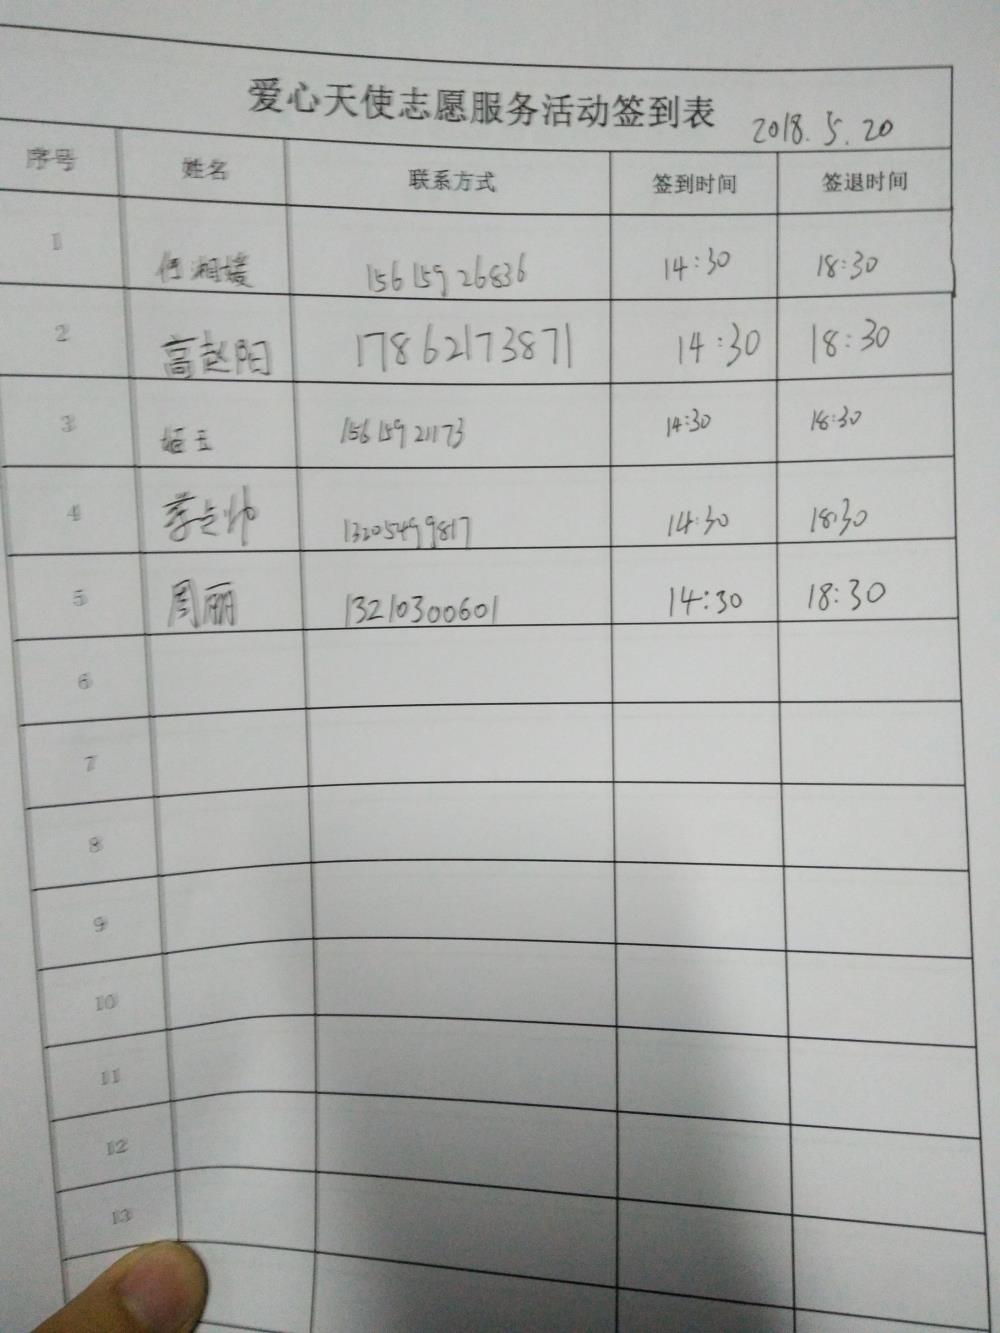 爱心天使志愿服务活动签到表 2018.5.20
序号 姓名 联系方式 签到时间 签退时间
1 湘媛 15615926836 14:30 18:30
2 高赵阳 17862173871 14:30 18:30
3 15615921173 14:30 18:30
4 13205499817 14:30 18:30
5 周丽 13210300601 14:30 18:30
6
7
8
9
10
11
12
13